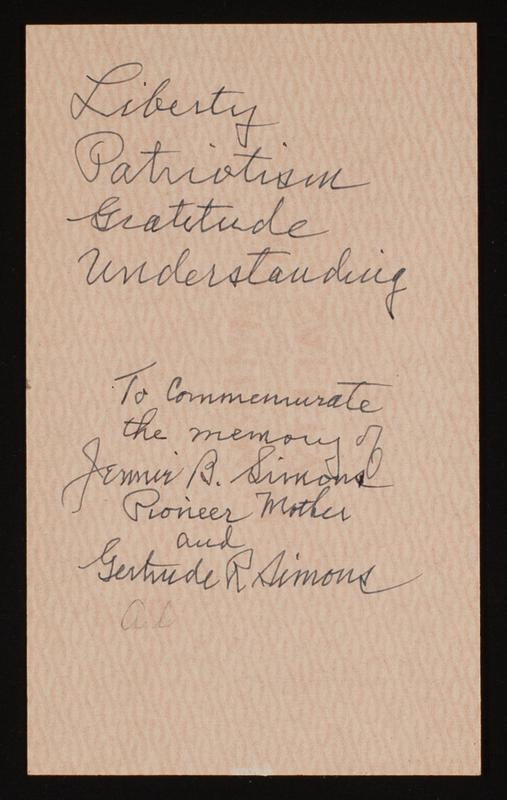 Liberty
Patriotism
Gratitude
Understanding
To Commemurate
the memory of
Jennie B. Simons
Pioneer Mother
and
Gertrude R Simons